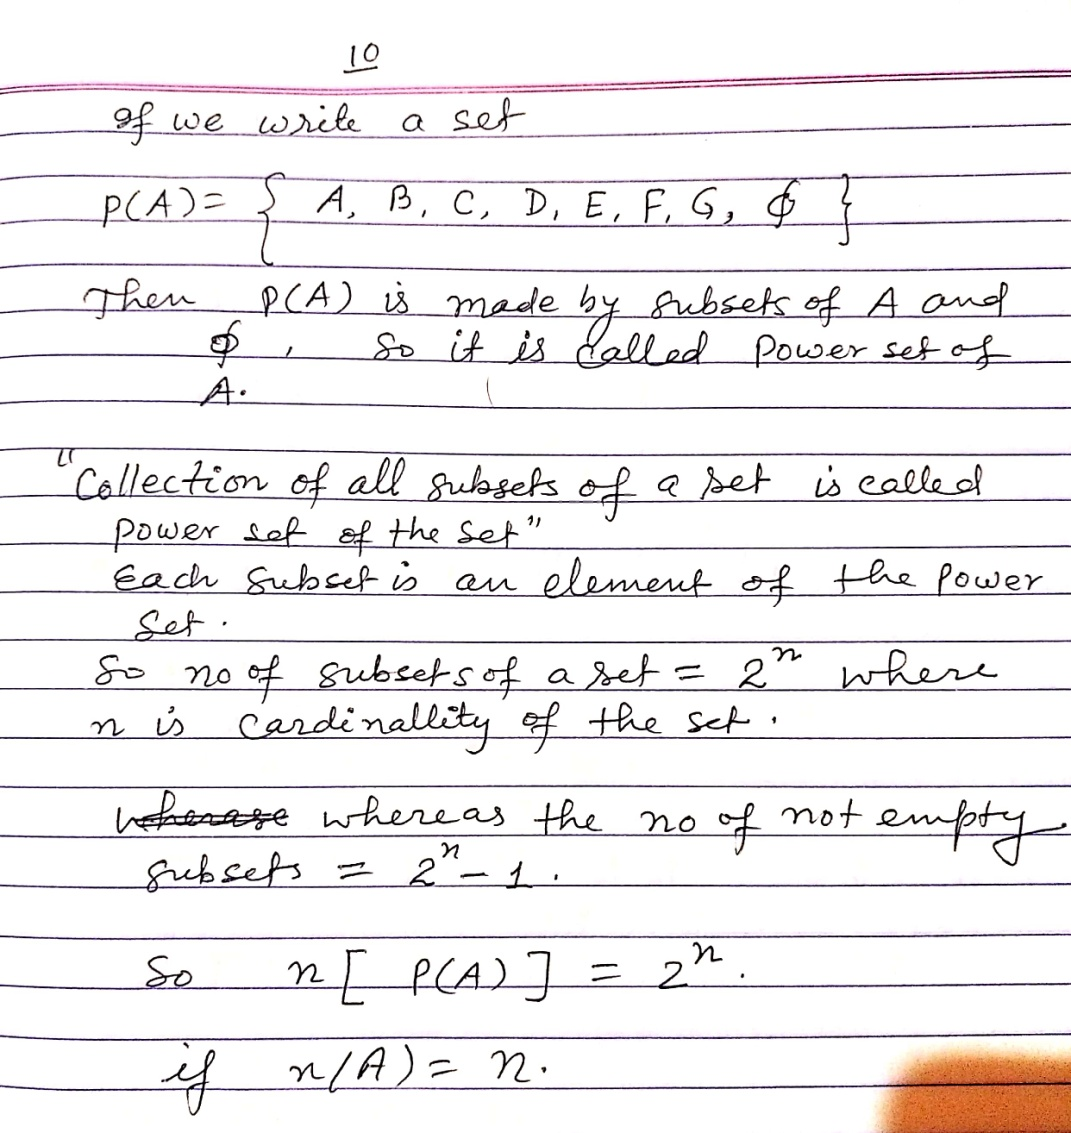 10
If we write a set
P(A) = { A, B, C, D, E, F, G, ϕ }
Then P(A) is made by subsets of A and
ϕ , So it is called Power set of
A.
"Collection of all subsets of a set is called
power set of the set"
Each subset is an element of the power
set.
So no of subsets of a set = 2ⁿ where
n is cardinallity of the set.
wherase whereas the no of not empty
subsets = 2ⁿ - 1.
So n[ P(A) ] = 2ⁿ.
if n(A) = n.